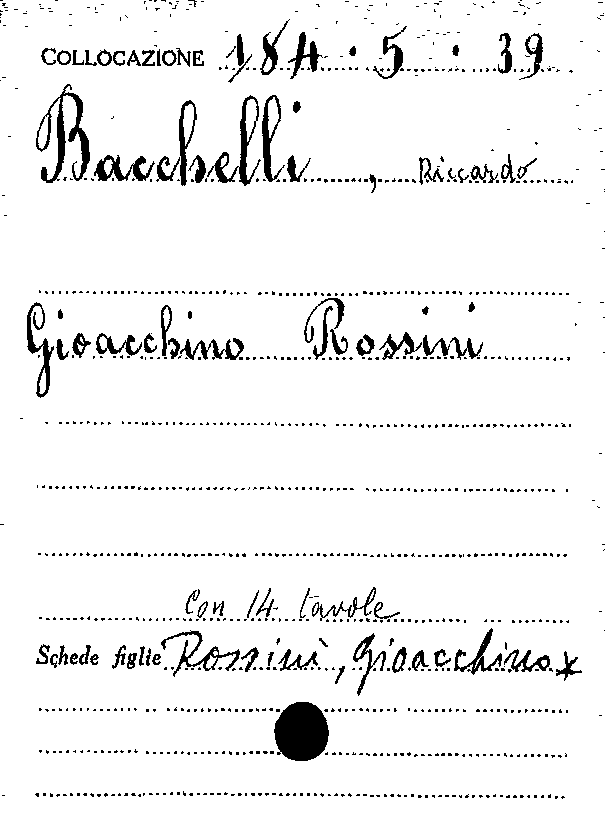 COLLOCAZIONE 184 . 5 . 39
Bacchelli , Riccardo
Gioacchino Rossini
Con 14 tavole
Schede figlie Rossini, Gioacchino *